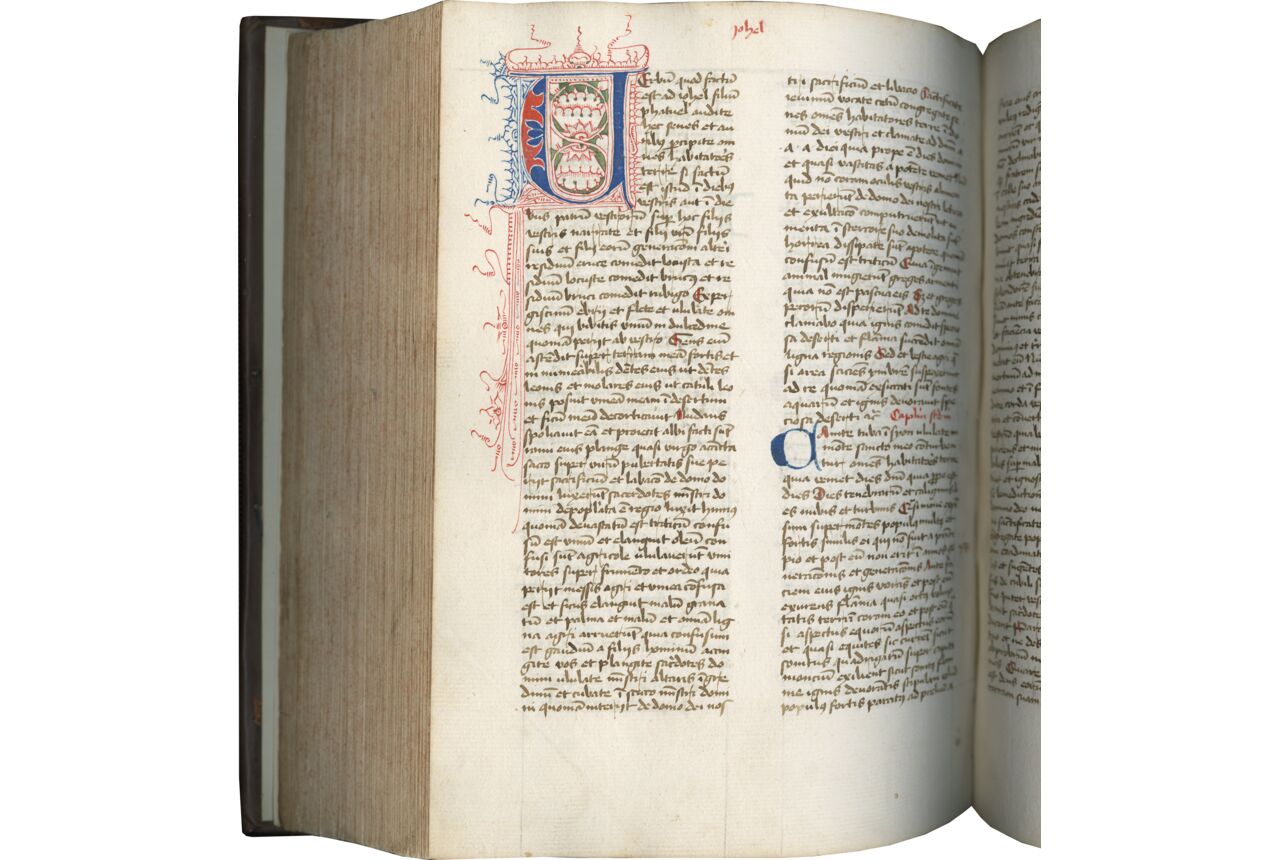 Johel
Verbū quod factū
est ad iohel filiū
phatuel audite
hec senes et au
ribus pcipite om
nes habitatores
terre si factū
est istud ī diebus
vestris aut ī die
bus patrū vestrorū super hoc filiis
vestris narrate et filii vestri filiis
suis et filii eorū generacōni alteri
residuū eruce comedit locusta et re
siduū locuste comedit bruchus et re
siduū bruci comedit rubigo Exper
giscimini ebrii et flete et ululate om
nes qui bibitis vinū in dulcedine
quoniā perijt ab ore vestro Gens enī
ascēdit super terram meā fortis et
innumerabilis dētes eius ut dētes
leonis et molares eius ut catuli leo
nis posuit vineā meam ī desertum
et ficū meā decorticavit Nudans
spoliavit eā et proiecit albi facti sūt
rami eius plange quasi virgo accīcta
sacco super virū pubertatis sue pe
rijt sacrificiū et libacō de domo do
mini luxerūt sacerdotes mīstri do
mini depopulata ē regio luxit humus
quoniā devastatū est triticū confu
sū est vinū et elanguit oleū con
fusi sūt agricole ululaverūt vini
tores super frumēto et ordeo quia
perijt messis agri et vinea cōfusa
est et ficus elanguit malū grana
tū et palma et malū et omīa lig
na agri aruerūt quia confusum
est gaudiū a filiis hominū accin
gite vos et plangite sacerdotes do
mini ululate mīstri altaris īgre
dimī et cubate ī sacco mīstri domi
ni quoniā interijt de domo dei vestri
sacrificiū et libacio Sanctificate
ieiuniū vocate cetū congregate se
nes omēs habitatores terre ī do
mū dei vestri et clamate ad dnm
a a a diei quia prope ē dies domini
et quasi vastitas a potēte veniet
quid nō coram oculis vestris alimē
ta perierūt de domo dei nostri leticia
et exultacō computruerūt iu
menta ī stercore suo demolita sūt
horrea dissipate sūt apotece quoniā
confusū est triticū Quid īgemuit
animal mugierūt greges armenti
quia nō est pascua eis Sed et greges
pecorū disperierūt Ad te domine
clamabo quia ignis comedit specio
sa deserti et flāma succēdit omīa
ligna regionis Sed et bestie agri qua
si area sciēs ymbrē suspexerūt
ad te quoniā exsiccati sūt fontes
aquarū et ignis devoravit spe
ciosa deserti Caplm scdm
Canite tuba ī syon ululate in
mōte sancto meo conturben
tur omēs habitatores terre
quia venit dies dnī quia ppe est
dies Dies tenebrarū et caliginis di
es nubis et turbinis Quasi mane expā
sum super mōtes populus multus et
fortis similis ei qui nō fuit a princi
pio et post eū non erit ī annos ge
neracionis et generacōnis Ante fa
ciem eius ignis vorans et post eū
exurens flāma quasi ortus volup
tatis terra coram eo et post eū
si aspectus equorū aspectus eorū
et quasi equites sic current sicut
sonitus quadrigarū super capita
moncium exilient sicut sonitus flam
me ignis devorātis stipulam velut
populus fortis paratus ad prelium